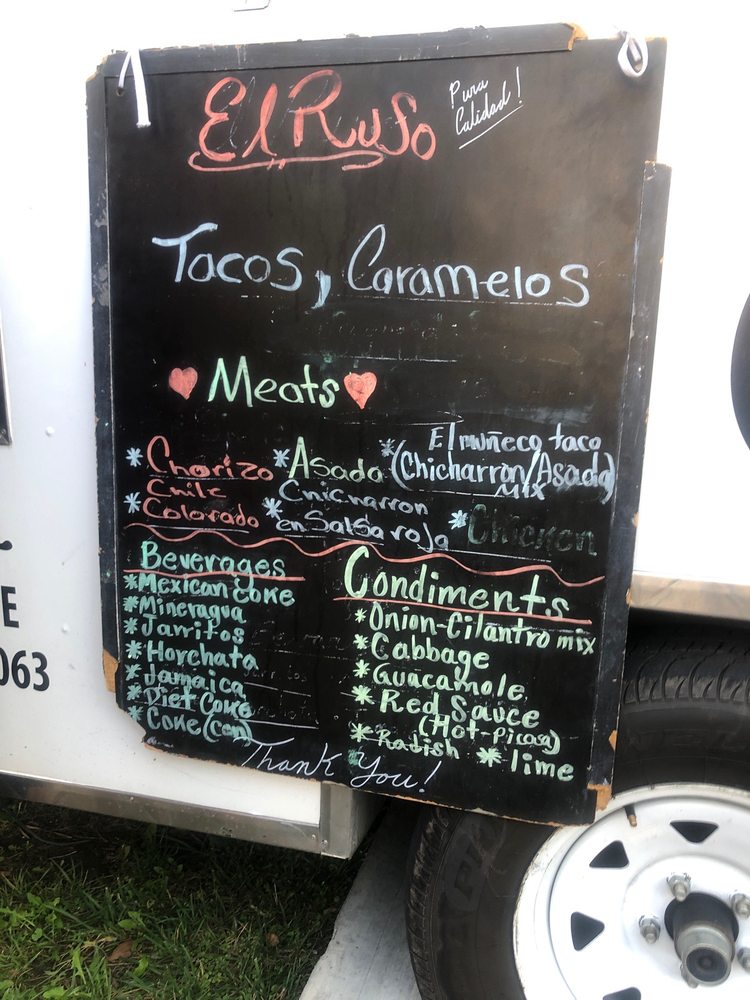 El Ruso
Pura
Calidad!
Tacos, Caramelos
Meats
*Chorizo
*Asada
*El muñeco taco
(Chicharron/Asada)
Mix
*Chile
Colorado
*Chicharron
en Salsa roja
*Chicken
Beverages
*Mexican Coke
*Mineragua
*Jarritos
*Horchata
*Jamaica
*Diet Coke
*Coke (can)
Condiments
*Onion-Cilantro mix
*Cabbage
*Guacamole
*Red Sauce
(Hot-picosa)
*Radish *lime
Thank You!
E
063